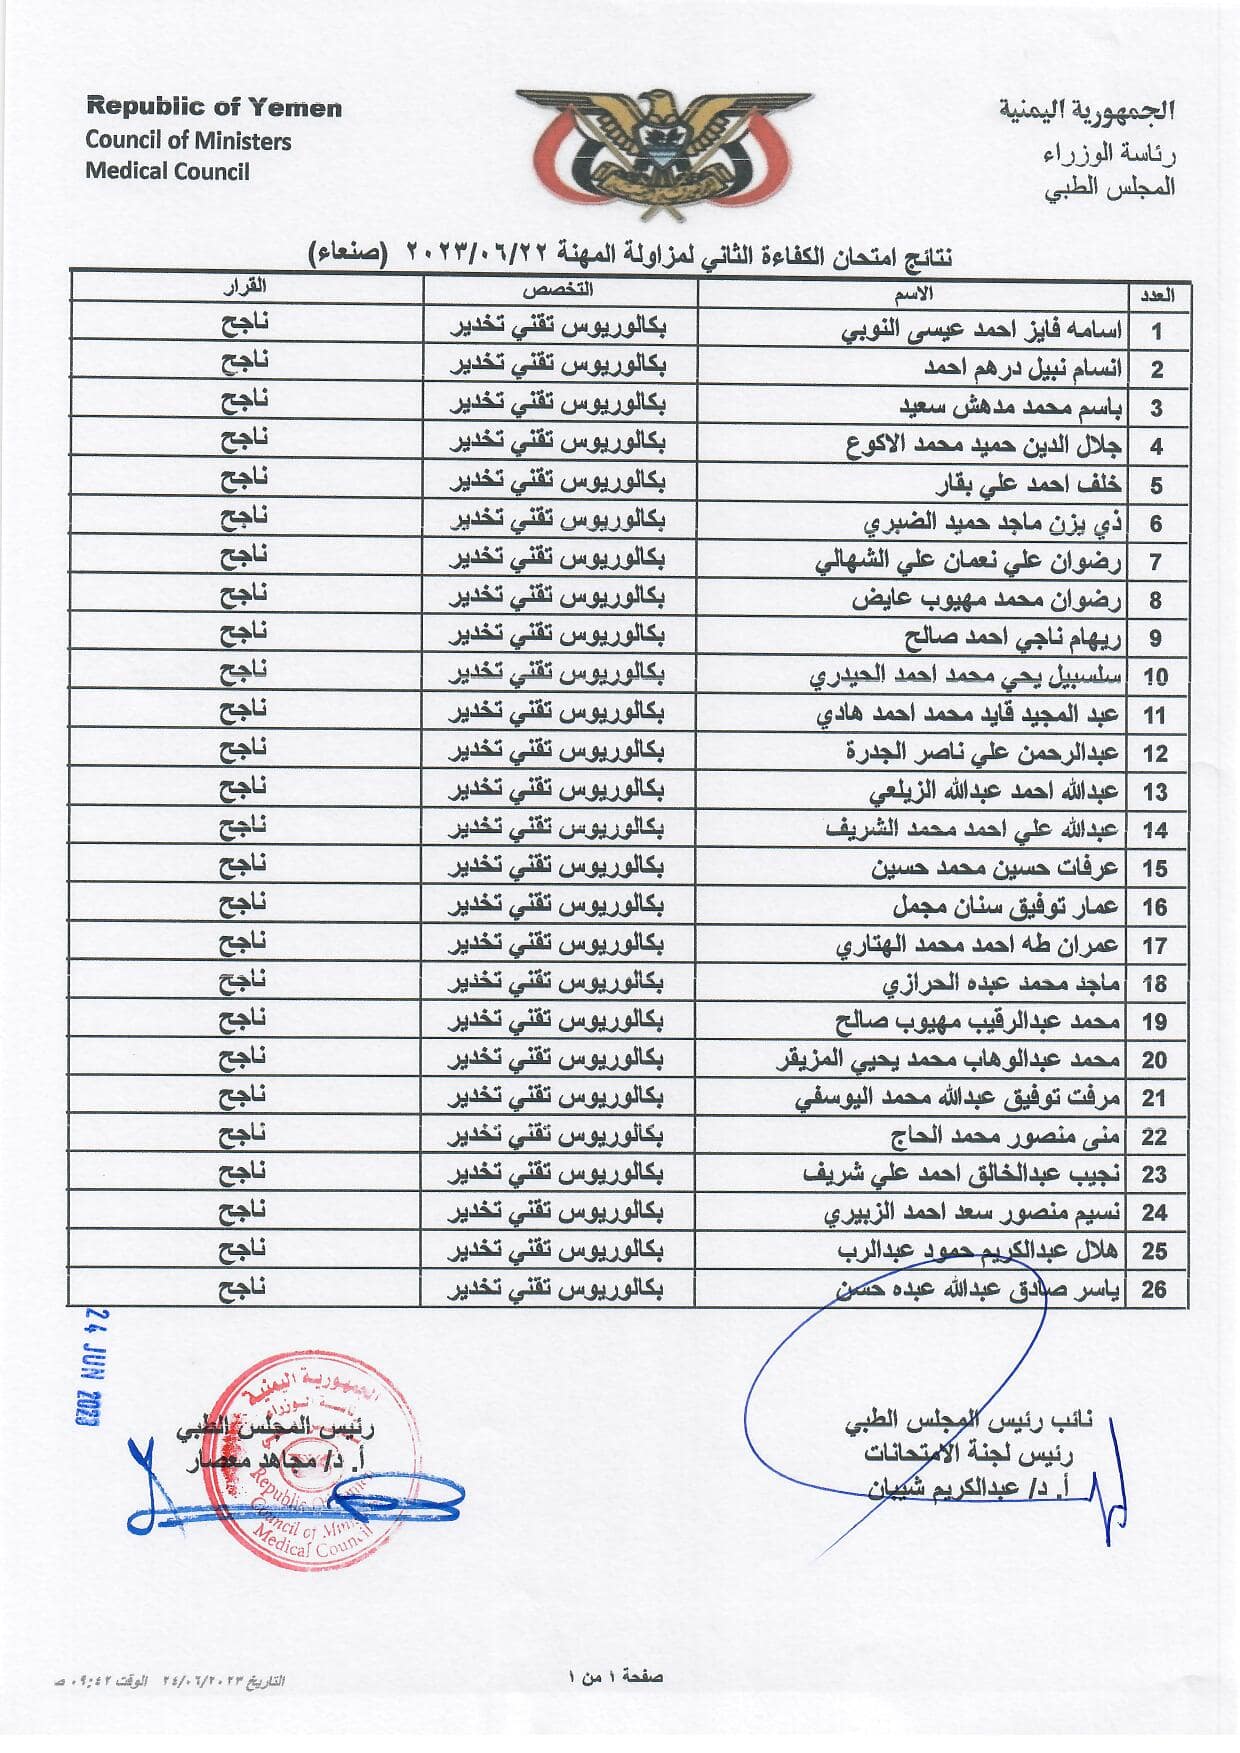 Republic of Yemen
Council of Ministers
Medical Council
الجمهورية اليمنية
رئاسة الوزراء
المجلس الطبي
نتائج امتحان الكفاءة الثاني لمزاولة المهنة ٢٠٢٣/٠٦/٢٢ (صنعاء)
العدد الاسم التخصص القرار
1 اسامه فايز احمد عيسى النوبي بكالوريوس تقني تخدير ناجح
2 انسام نبيل درهم احمد بكالوريوس تقني تخدير ناجح
3 باسم محمد مدهش سعيد بكالوريوس تقني تخدير ناجح
4 جلال الدين حميد محمد الاكوع بكالوريوس تقني تخدير ناجح
5 خلف احمد علي بقار بكالوريوس تقني تخدير ناجح
6 ذي يزن ماجد حميد الضبري بكالوريوس تقني تخدير ناجح
7 رضوان علي نعمان علي الشهالي بكالوريوس تقني تخدير ناجح
8 رضوان محمد مهيوب عايض بكالوريوس تقني تخدير ناجح
9 ريهام ناجي احمد صالح بكالوريوس تقني تخدير ناجح
10 سلسبيل يحي محمد احمد الحيدري بكالوريوس تقني تخدير ناجح
11 عبد المجيد قايد محمد احمد هادي بكالوريوس تقني تخدير ناجح
12 عبدالرحمن علي ناصر الجدرة بكالوريوس تقني تخدير ناجح
13 عبدالله احمد عبدالله الزيلعي بكالوريوس تقني تخدير ناجح
14 عبدالله علي احمد محمد الشريف بكالوريوس تقني تخدير ناجح
15 عرفات حسين محمد حسين بكالوريوس تقني تخدير ناجح
16 عمار توفيق سنان مجمل بكالوريوس تقني تخدير ناجح
17 عمران طه احمد محمد الهتاري بكالوريوس تقني تخدير ناجح
18 ماجد محمد عبده الحرازي بكالوريوس تقني تخدير ناجح
19 محمد عبدالرقيب مهيوب صالح بكالوريوس تقني تخدير ناجح
20 محمد عبدالوهاب محمد يحيي المزيقر بكالوريوس تقني تخدير ناجح
21 مرفت توفيق عبدالله محمد اليوسفي بكالوريوس تقني تخدير ناجح
22 منى منصور محمد الحاج بكالوريوس تقني تخدير ناجح
23 نجيب عبدالخالق احمد علي شريف بكالوريوس تقني تخدير ناجح
24 نسيم منصور سعد احمد الزبيري بكالوريوس تقني تخدير ناجح
25 هلال عبدالكريم حمود عبدالرب بكالوريوس تقني تخدير ناجح
26 ياسر صادق عبدالله عبده حسن بكالوريوس تقني تخدير ناجح
24 JUN 2023
نائب رئيس المجلس الطبي
رئيس لجنة الامتحانات
أ. د/ عبدالكريم شيبان
رئيس المجلس الطبي
أ. د/ مجاهد معصار
الجمهورية اليمنية
رئاسة الوزراء
Republic Of Yemen
Council of Ministers
Medical Council
صفحة ١ من ١
التاريخ ٢٤/٠٦/٢٠٢٣ الوقت ٠٩:٤٢ ص